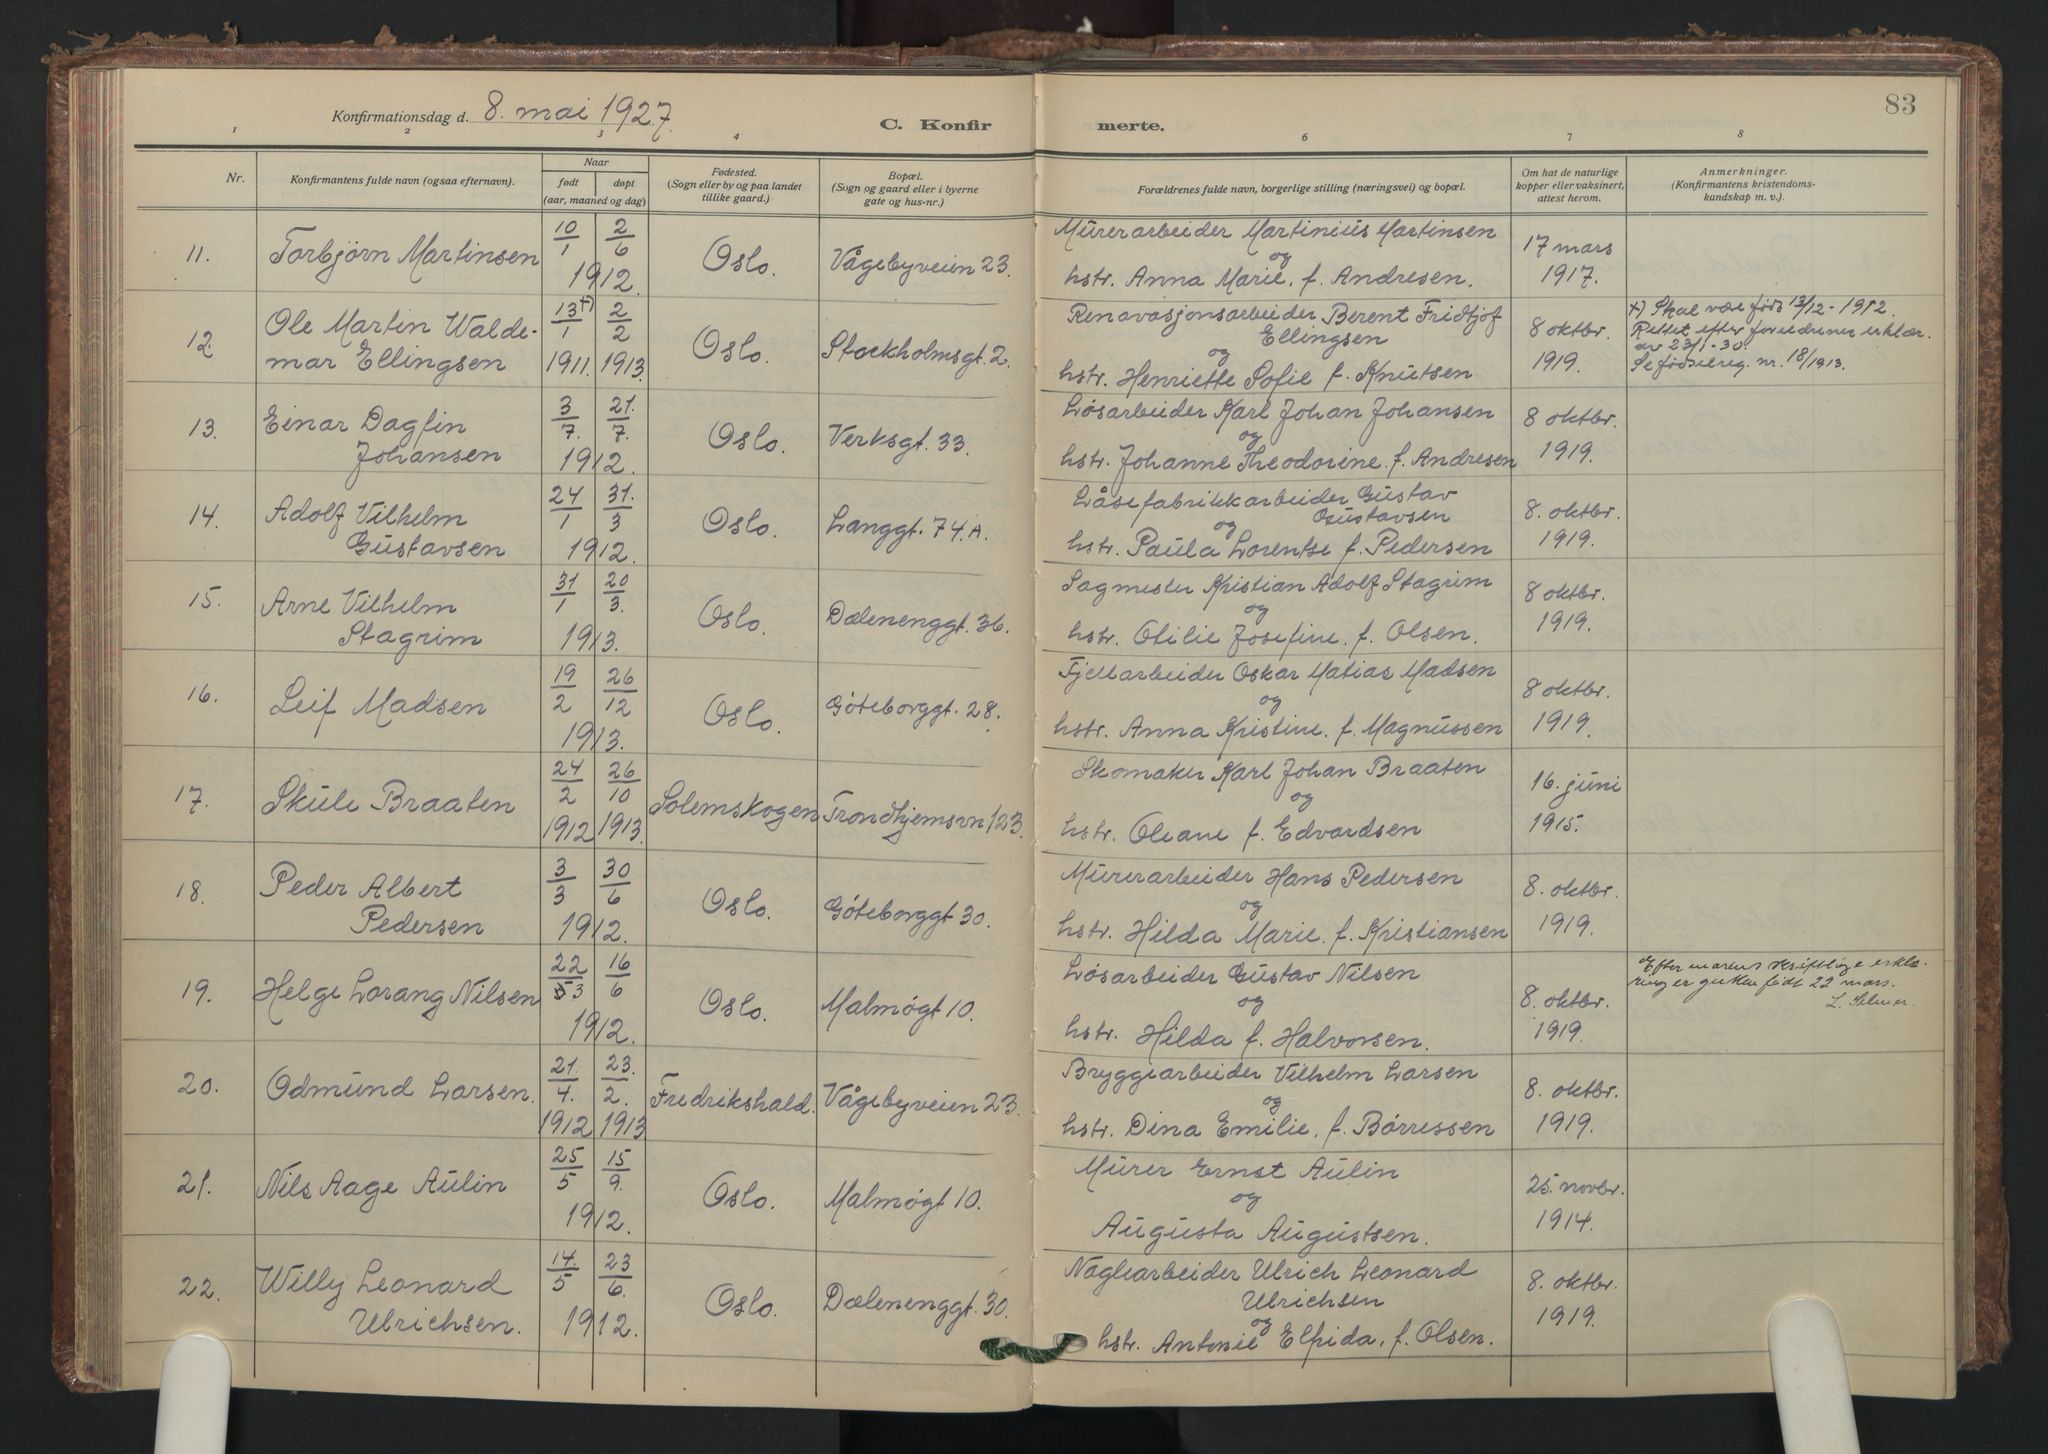 83
Konfirmationsdag d. 8. mai 1927.
C. Konfirmerte.
1 2 3 4 5 6 7 8
Nr.
Konfirmantens fulde navn (ogsaa efternavn).
Naar
født døpt
(aar, maaned og dag)
Fødested.
(Sogn eller by og paa landet
tillike gaard.)
Bopæl.
(Sogn og gaard eller i byerne
gate og hus-nr.)
Forældrenes fulde navn, borgerlige stilling (næringsvei) og bopæl.
Om hat de naturlige
kopper eller vaksinert,
attest herom.
Anmerkninger.
(Konfirmantens kristendoms-
kundskap m. v.)
11. Torbjørn Martinsen
10/1 2/6
1912.
Oslo.
Vågebyveien 23.
Mürerarbeider Martiniüs Martinsen
og
hstr. Anna Marie, f. Andresen.
17 mars
1917.
12. Ole Martin Walde-
mar Ellingsen
13/1 +) 2/2
1911. 1913.
Oslo.
Stockholmsgt. 2.
Renovasjonsarbeider Berent Fridtjof
Ellingsen
og
hstr. Henriette Sofie f. Knütsen
8 oktbr.
1919.
+) Skal være født 13/12 - 1912.
Rettet efter foreldrenes erklær.
av 23/1-30.
Se fødselreg. nr. 18/1913.
13. Einar Dagfin
Johansen
3/7. 21./7.
1912.
Oslo.
Verksgt. 33.
Løsarbeider Karl Johan Johansen
og
hstr. Johanne Theodorine f. Andresen
8 oktbr.
1919.
14. Adolf Vilhelm
Güstavsen
24/1 31./3
1912.
Oslo.
Langgt. 74. A.
Låsefabrikkarbeider Güstav
Güstavsen
og
hstr. Paüla Lorentse f. Pedersen
8. oktbr.
1919.
15. Arne Vilhelm
Stagrim
31/1 20/3.
1913.
Oslo.
Dælenenggt. 36.
Sagmester Kristian Adolf Stagrim
og
hstr. Otilie Josefine, f. Olsen.
8 oktbr.
1919.
16. Leif Madsen
19/2 26/12
1913.
Oslo.
Göteborggt. 28.
Fjellarbeider Oskar Matias Madsen
og
hstr. Anna Kristine, f. Magnüssen
8 oktbr.
1919.
17. Sküle Braaten
24/2 26/10
1912 1913.
Solemskogen
Trondhjemsvn 123.
Skomaker Karl Johan Braaten
og
hstr. Oleane f. Edvardsen
16. jüni
1915.
18. Peder Albert
Pedersen
3/3 30/6
1912.
Oslo.
Göteborggt 30.
Mürerarbeider Hans Pedersen
og
hstr. Hilda Marie, f. Kristiansen
8. oktbr.
1919.
19. Helge Lorang Nilsen
22/5 3 16/6
1912.
Oslo.
Malmøgt 10.
Løsarbeider Güstav Nilsen
og
hstr. Hilda f. Halvorsen.
8. oktbr.
1919.
Efter morens skriftlige erklæ-
ring er gutten født 22 mars.
L. Selmer.
20. Odmünd Larsen.
21./4. 23./2.
1912 1913
Fredrikshald.
Vågebyveien 23.
Bryggearbeider Vilhelm Larsen
og
hstr. Dina Emilie, f. Børressen
8. oktbr.
1919.
21. Nils Aage Aülin
25/5 15/9.
1912.
Oslo.
Malmøgt 10.
Mürer Ernst Aülin
og
Aügüsta Aügüstsen.
25. novbr.
1914.
22. Willy Leonard
Ulrichsen.
14./5 23/6.
1912.
Oslo.
Dælenenggt. 30.
Naglearbeider Ulrich Leonard
Ulrichsen
og
hstr. Antonie Elfrida, f. Olsen.
8. oktbr.
1919.